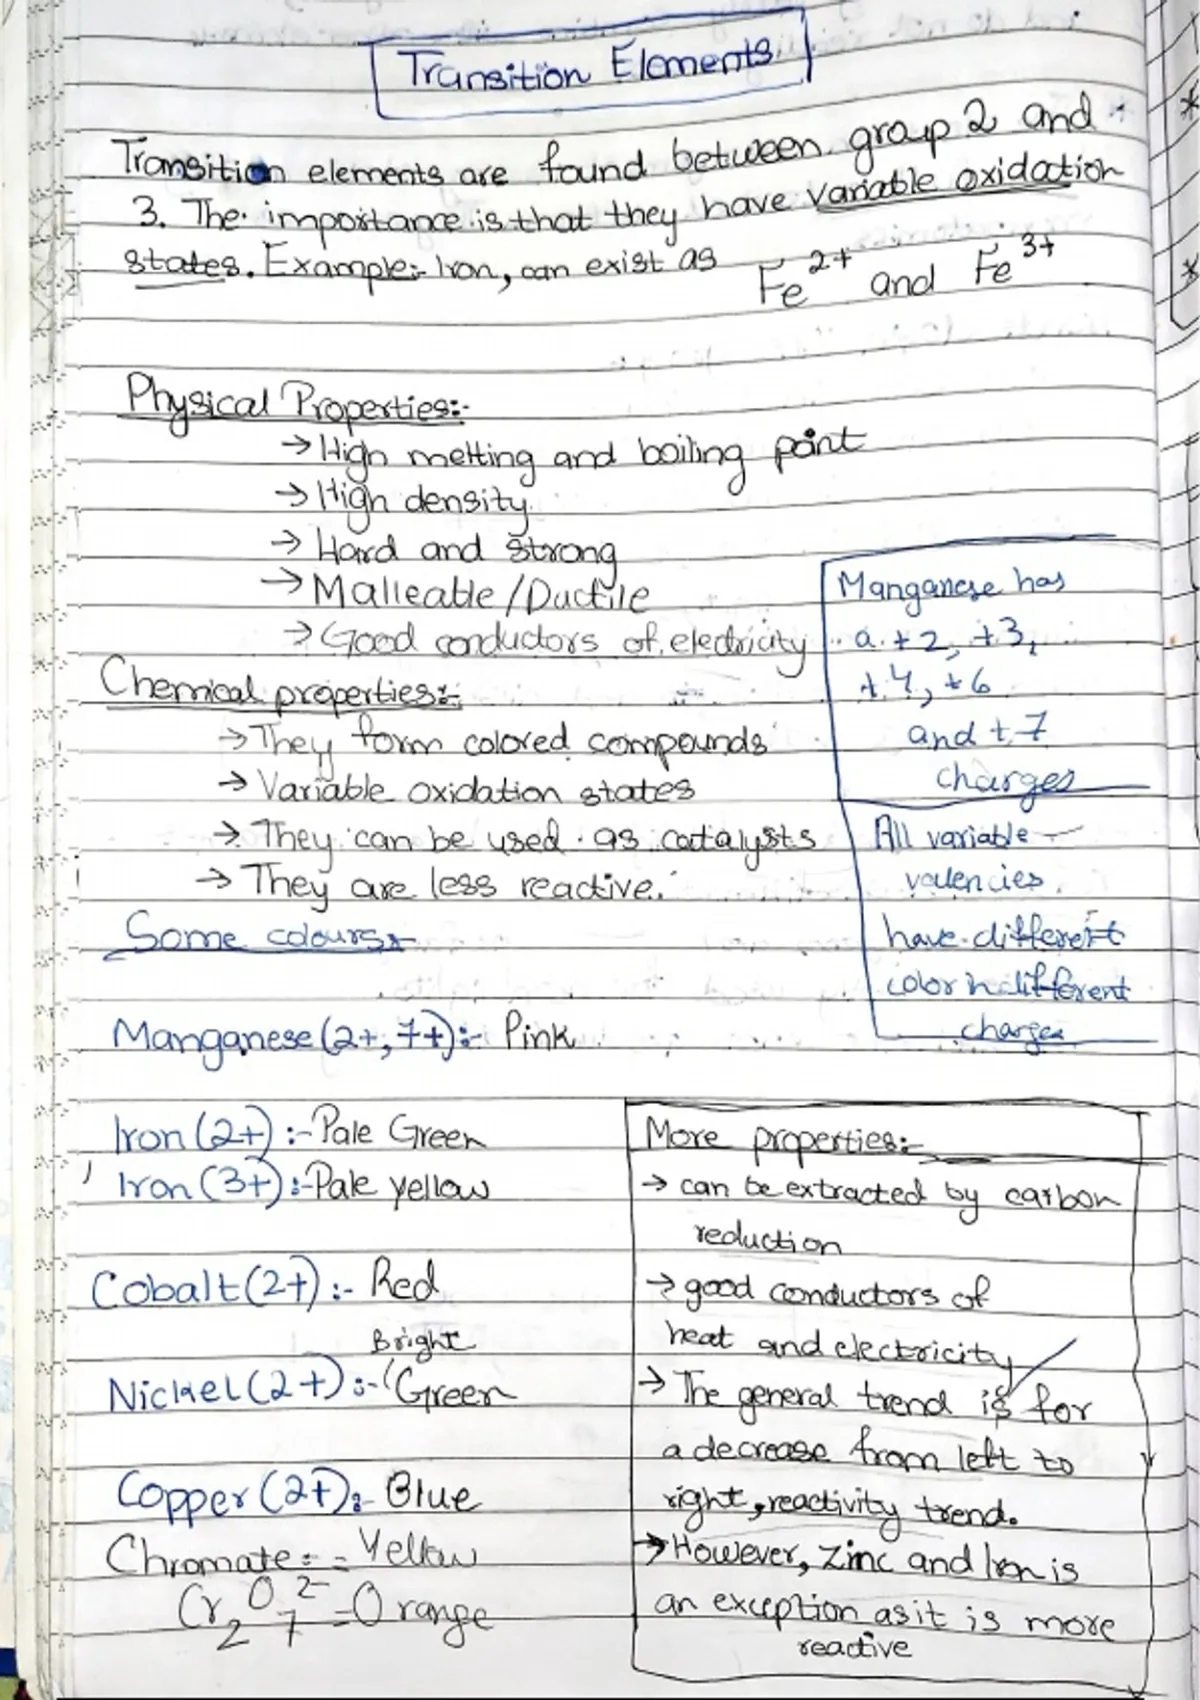 Transition Elements
Transition elements are found between group 2 and
3. The importance is that they have variable oxidation
states. Example:- Iron, can exist as Fe²⁺ and Fe³⁺
Physical Properties:-
→ High melting and boiling point
→ High density
→ Hard and strong
→ Malleable / Ductile
→ Good conductors of electricity
Chemical properties:-
→ They form colored compounds
→ Variable oxidation states
→ They can be used as catalysts
→ They are less reactive.
Manganese has
a +2, +3,
+4, +6
and +7
charges
All variable
valencies
have different
color in different
charges
Some colours:-
Manganese (2+, 7+):- Pink
Iron (2+):- Pale Green
Iron (3+):- Pale yellow
Cobalt (2+):- Red
Bright
Nickel (2+):- Green
Copper (2+):- Blue
Chromate:= Yellow
Cr₂O₇²⁻ = Orange
More properties:-
→ can be extracted by carbon
reduction
→ good conductors of
heat and electricity
→ The general trend is for
a decrease from left to
right, reactivity trend.
→ However, Zinc and Iron is
an exception as it is more
reactive